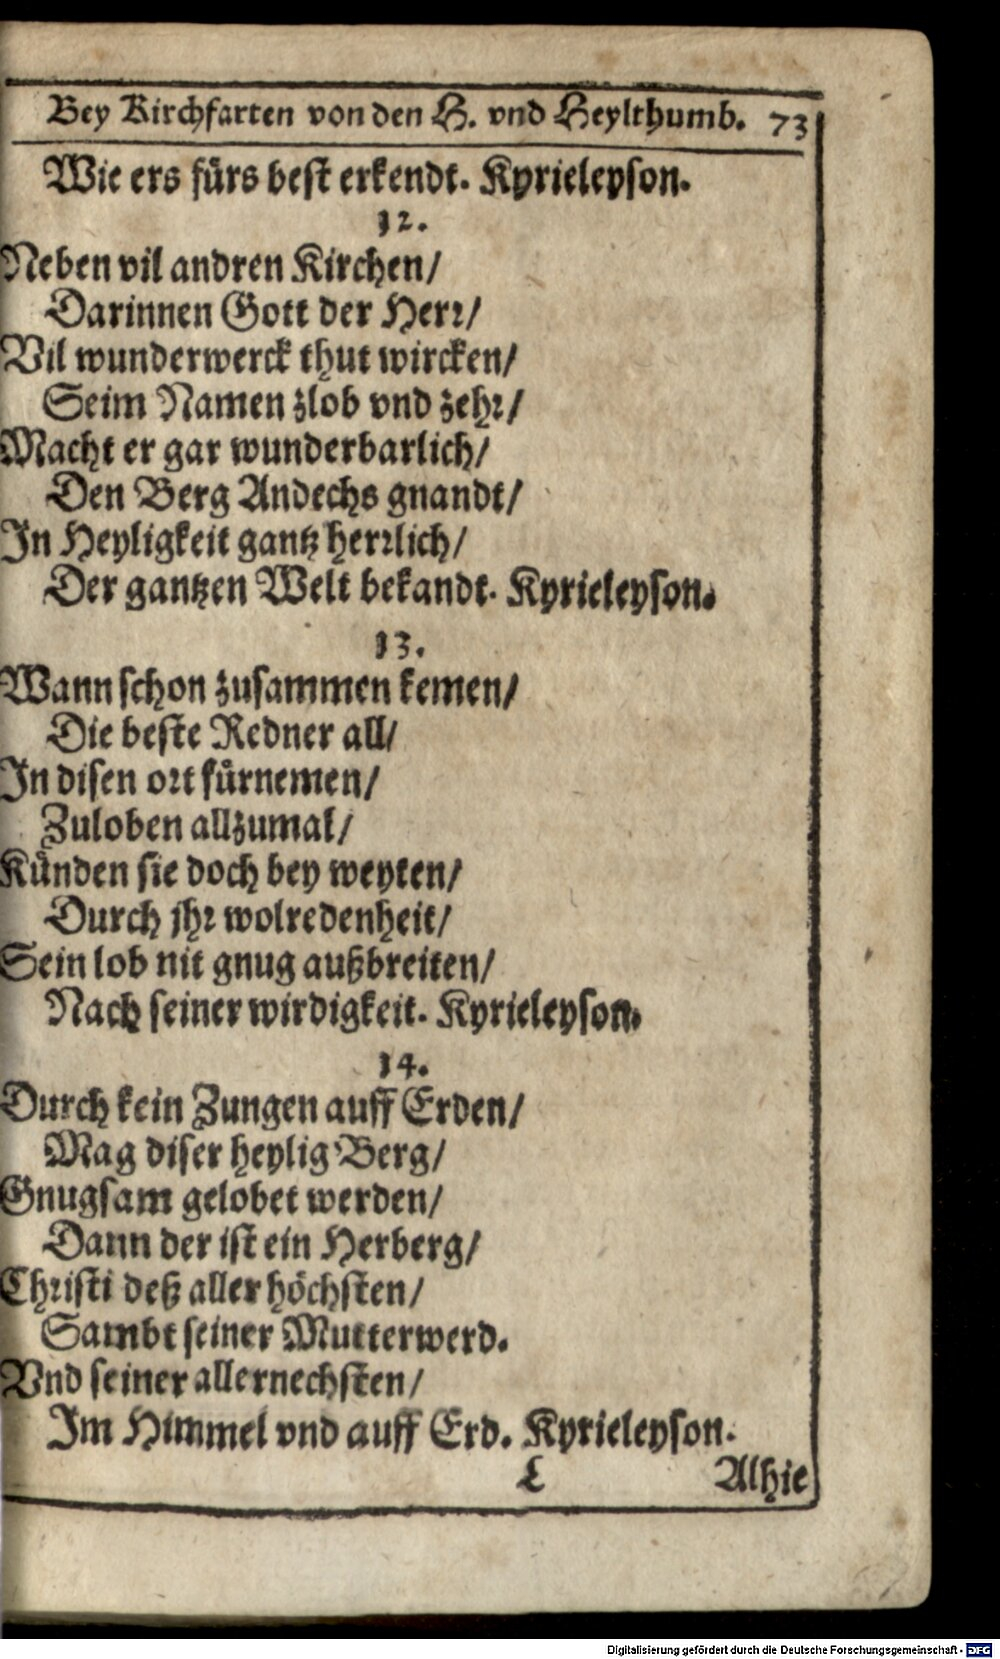 Bey Kirchfarten von den H. vnd Heylthumb. 73
Wie ers fürs best erkendt. Kyrieleyson.
12.
Neben vil andren Kirchen/
Darinnen Gott der Herr/
Vil wunderwerck thut wircken/
Seim Namen zlob vnd zehr/
Macht er gar wunderbarlich/
Den Berg Andechs gnandt/
In Heyligkeit gantz herrlich/
Der gantzen Welt bekandt. Kyrieleyson.
13.
Wann schon zusammen kemen/
Die beste Redner all/
In disen ort fürnemen/
Zuloben allzumal/
Künden sie doch bey weyten/
Durch jhr wolredenheit/
Sein lob nit gnug außbreiten/
Nach seiner wirdigkeit. Kyrieleyson.
14.
Durch kein Zungen auff Erden/
Mag diser heylig Berg/
Gnugsam gelobet werden/
Dann der ist ein Herberg/
Christi deß aller höchsten/
Sambt seiner Mutter werd.
Vnd seiner allernechsten/
Im Himmel vnd auff Erd. Kyrieleyson.
L Alhie
Digitalisierung gefördert durch die Deutsche Forschungsgemeinschaft - DFG